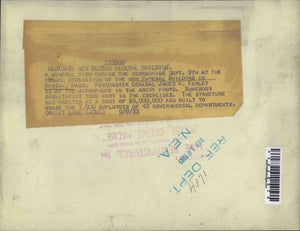 DEDICATE NEW BOSTON FEDERAL BUILDING.
A GENERAL VIEW DURING THE CEREMONIES SEPT. 9TH AT THE
FORMAL DEDICATION OF THE NEW FEDERAL BUILDING IN
BOSTON, MASS. POSTMASTER GENERAL JAMES A. FARLEY
IS AT THE MICROPHONE IN THE ABOVE PHOTO. NUMEROUS
DIGNITARIES TOOK PART IN THE EXERCISES. THE STRUCTURE
WAS ERECTED AT A COST OF $6,000,000 AND BUILT TO
HOUSE THE 7,000 EMPLOYEES OF 43 GOVERNMENTAL DEPARTMENTS.
CREDIT LINE (ACME) 9/9/33
CREDIT "ACME"
PICTURES, Inc
REF. DEPT.
N.E.A.
SEP